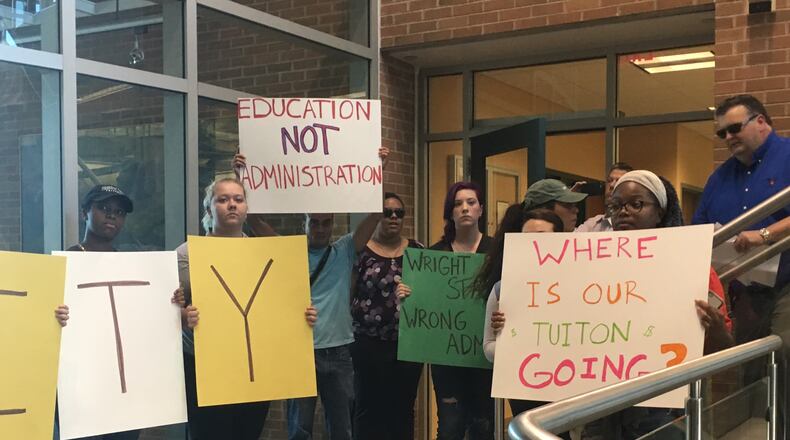 EDUCATION
NOT
ADMINISTRATION
E
T
Y
WRIGHT
WRONG
WHERE
IS OUR
$ TUITON $
GOING?